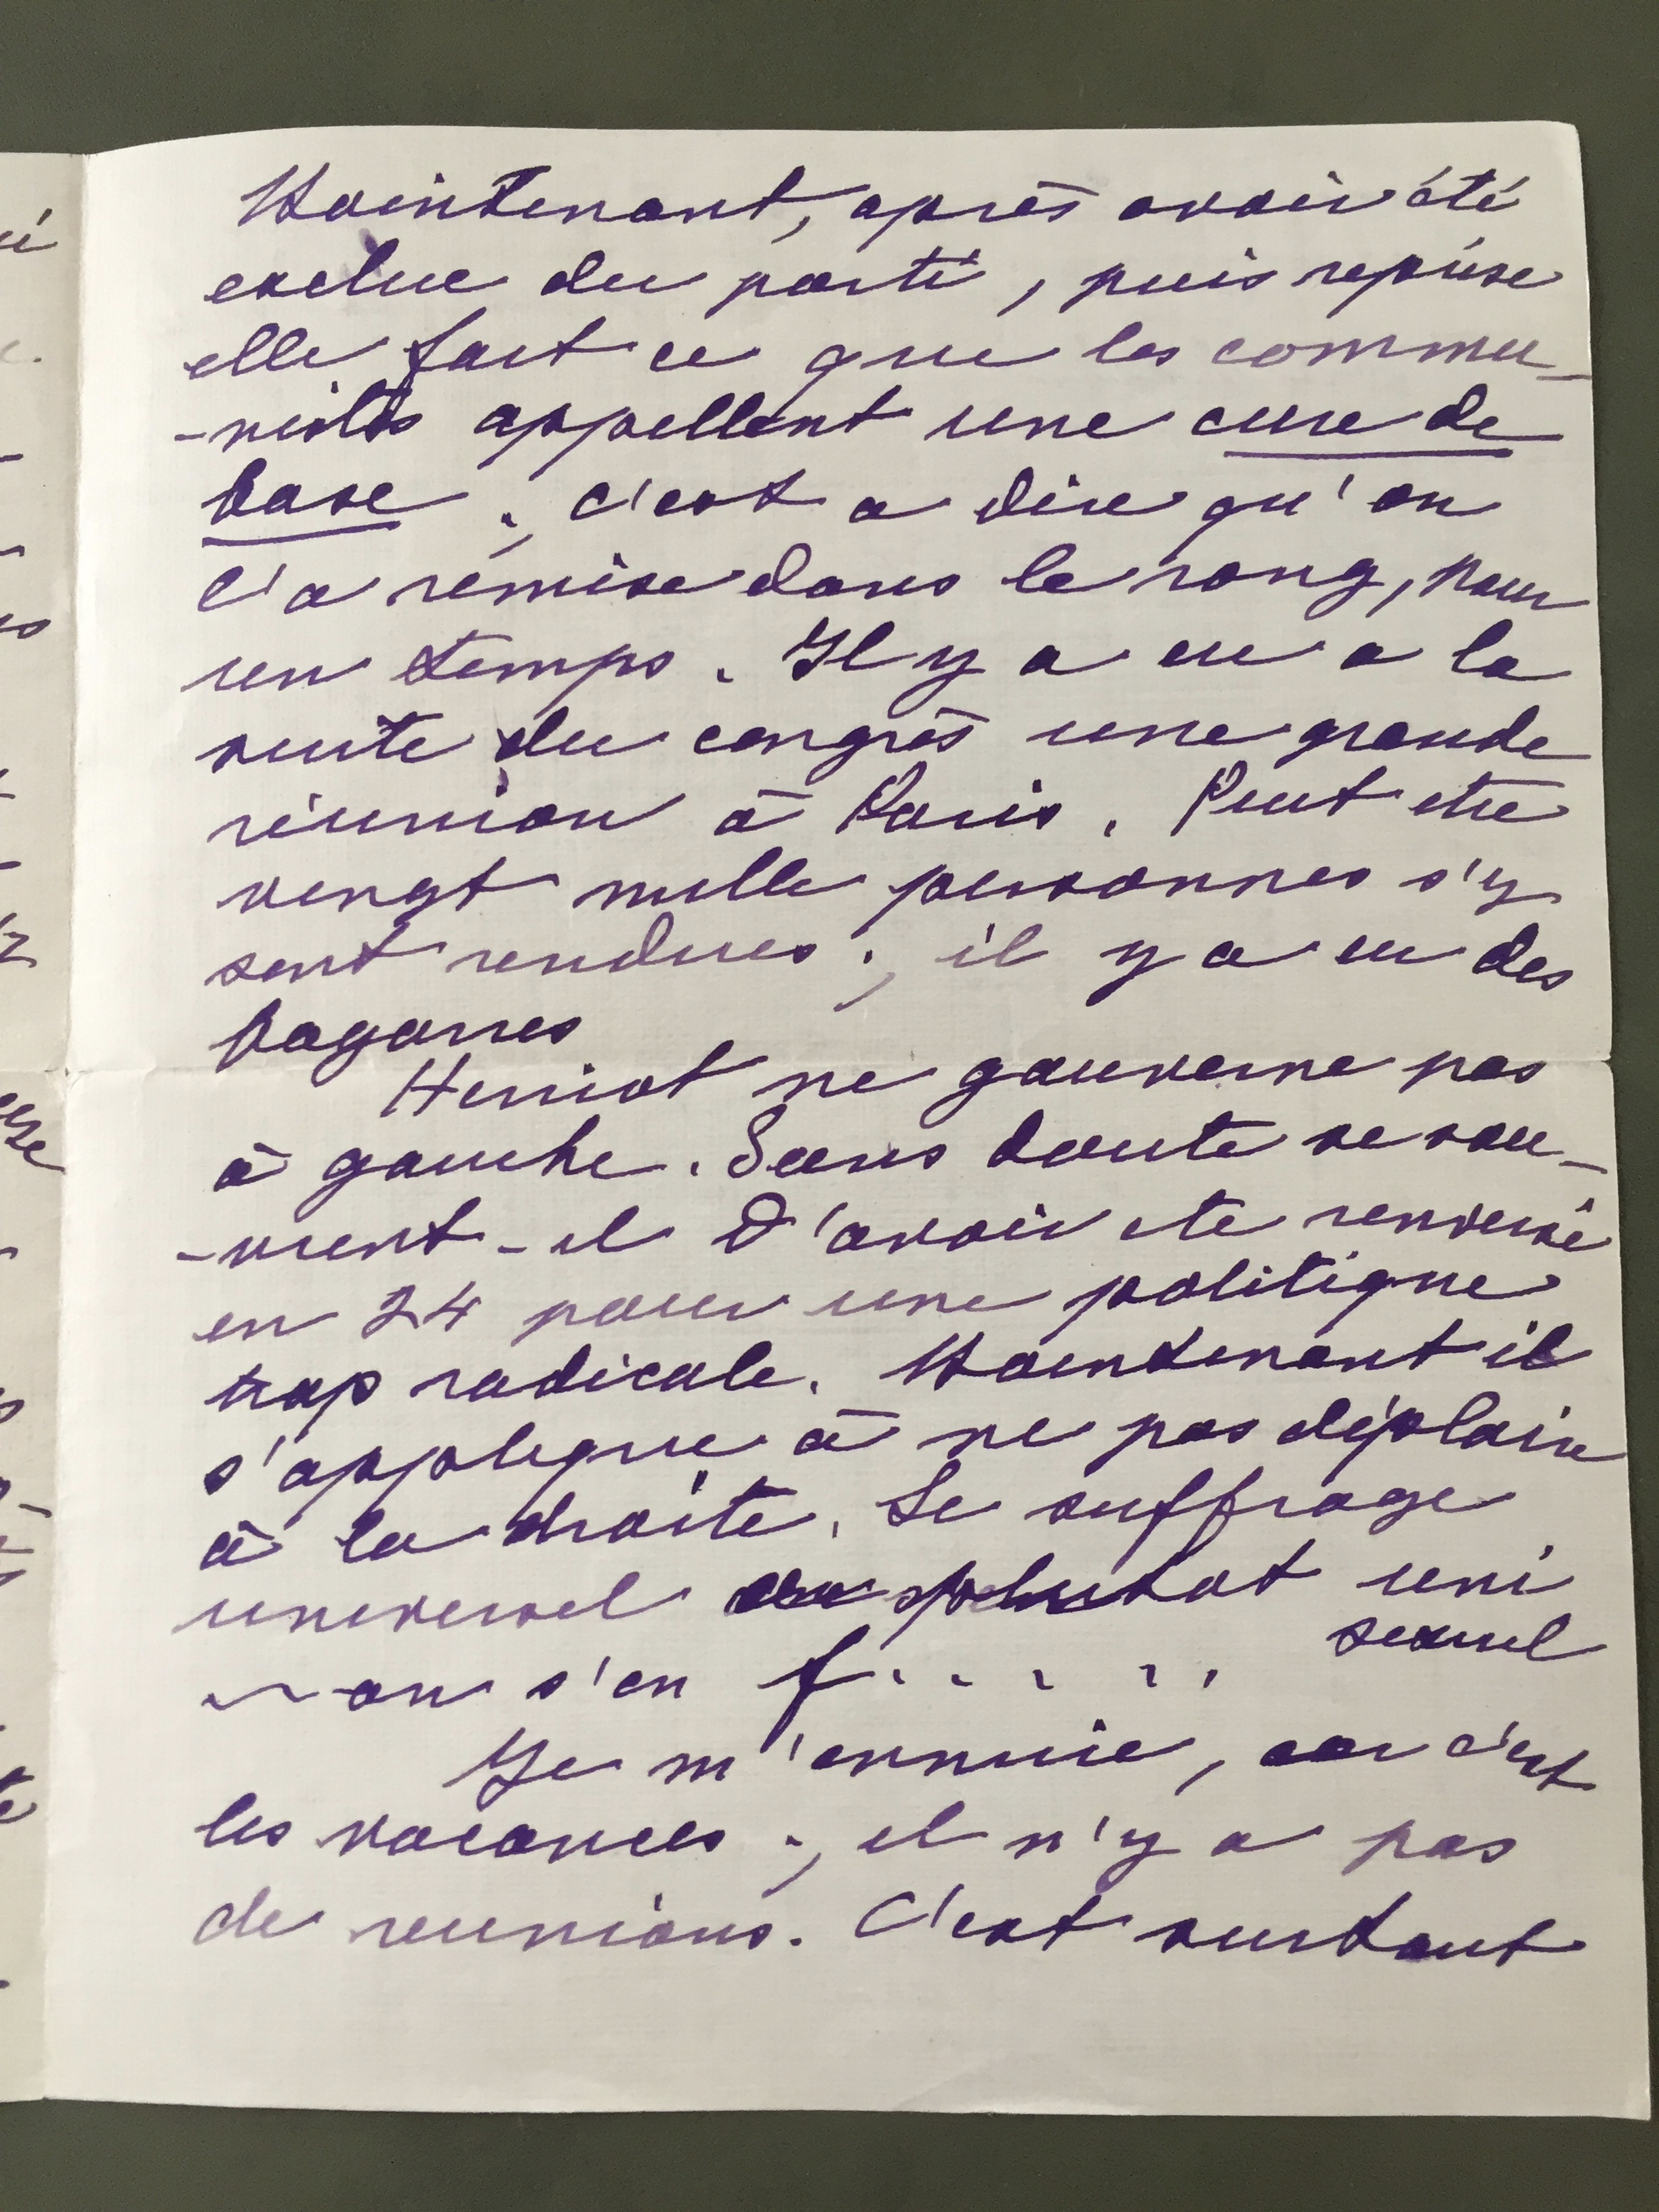 Maintenant, après avoir été
exclue du parti, puis reprise
elle fait ce que les commu-
-nistes appellent une cure de
base ; c'est a dire qu'on
l'a remise dans le rang, pour
un temps. Il y a eu a la
suite du congrès une grande
réunion à Paris. Peut etre
vingt mille personnes s'y
sont rendues ; il y a eu des
bagarres
Herriot ne gouverne pas
à gauche. Sans doute se sou-
-vient-il d'avoir ete renversé
en 24 pour une politique
trop radicale. Maintenant il
s'applique à ne pas déplaire
à la droite. Le suffrage
universel ou plutot uni
sexuel
on s'en f.....
Je m'ennuie, car c'est
les vacances ; il n'y a pas
de reunions. C'est surtout